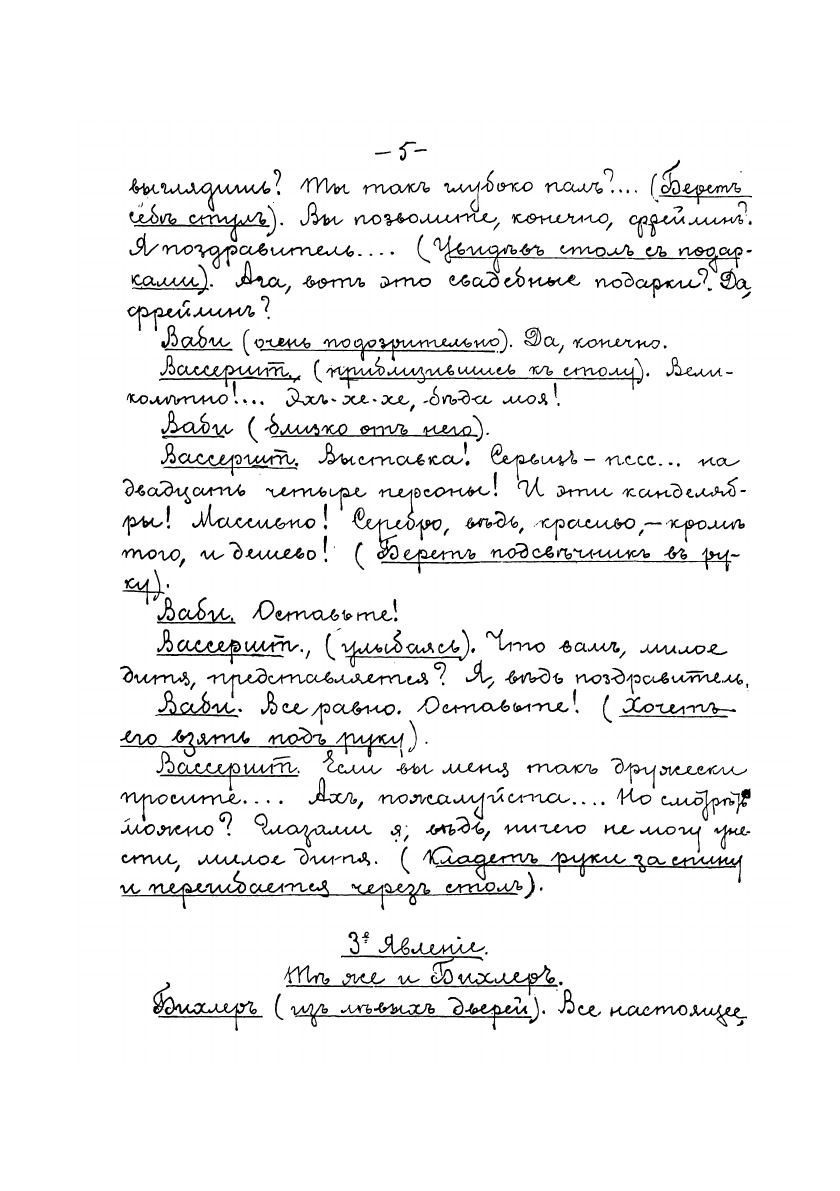 — 5 —
выглядишь? Ты такъ глубоко палъ?... (Беретъ
себѣ стулъ). Вы позволите, конечно, фрейлинъ?
Я поздравитель.... (Увидѣвъ столъ съ подар-
ками). Ага, вотъ это свадебные подарки? Да,
фрейлинъ?
Ваби (очень подозрительно). Да, конечно.
Вассершт., (приблизившись къ столу). Вели-
колѣпно!... Эхъ-хе-хе, бѣда моя!
Ваби (близко отъ него).
Вассершт. Выставка! Сервизъ — пссс... на
двадцать четыре персоны! И эти канделяб-
ры! Массивно! Серебро, вѣдь, красиво, — кромѣ
того, и дешево! (Беретъ подсвѣчникъ въ ру-
ку).
Ваби. Оставьте!
Вассершт., (улыбаясь). Что вамъ, милое
дитя, представляется? Я, вѣдь поздравитель.
Ваби. Все равно. Оставьте! (Хочетъ
его взять подъ руку).
Вассершт. Если вы меня такъ дружески
просите.... Ахъ, пожалуйста.... Но смотрѣть
можно? Глазами я, вѣдь, ничего не могу уне-
сти, милое дитя. (Кладетъ руки за спину
и перегибается черезъ столъ).
3е Явленіе.
Тѣ же и Бихлеръ.
Бихлеръ (изъ лѣвыхъ дверей). Все настоящее,